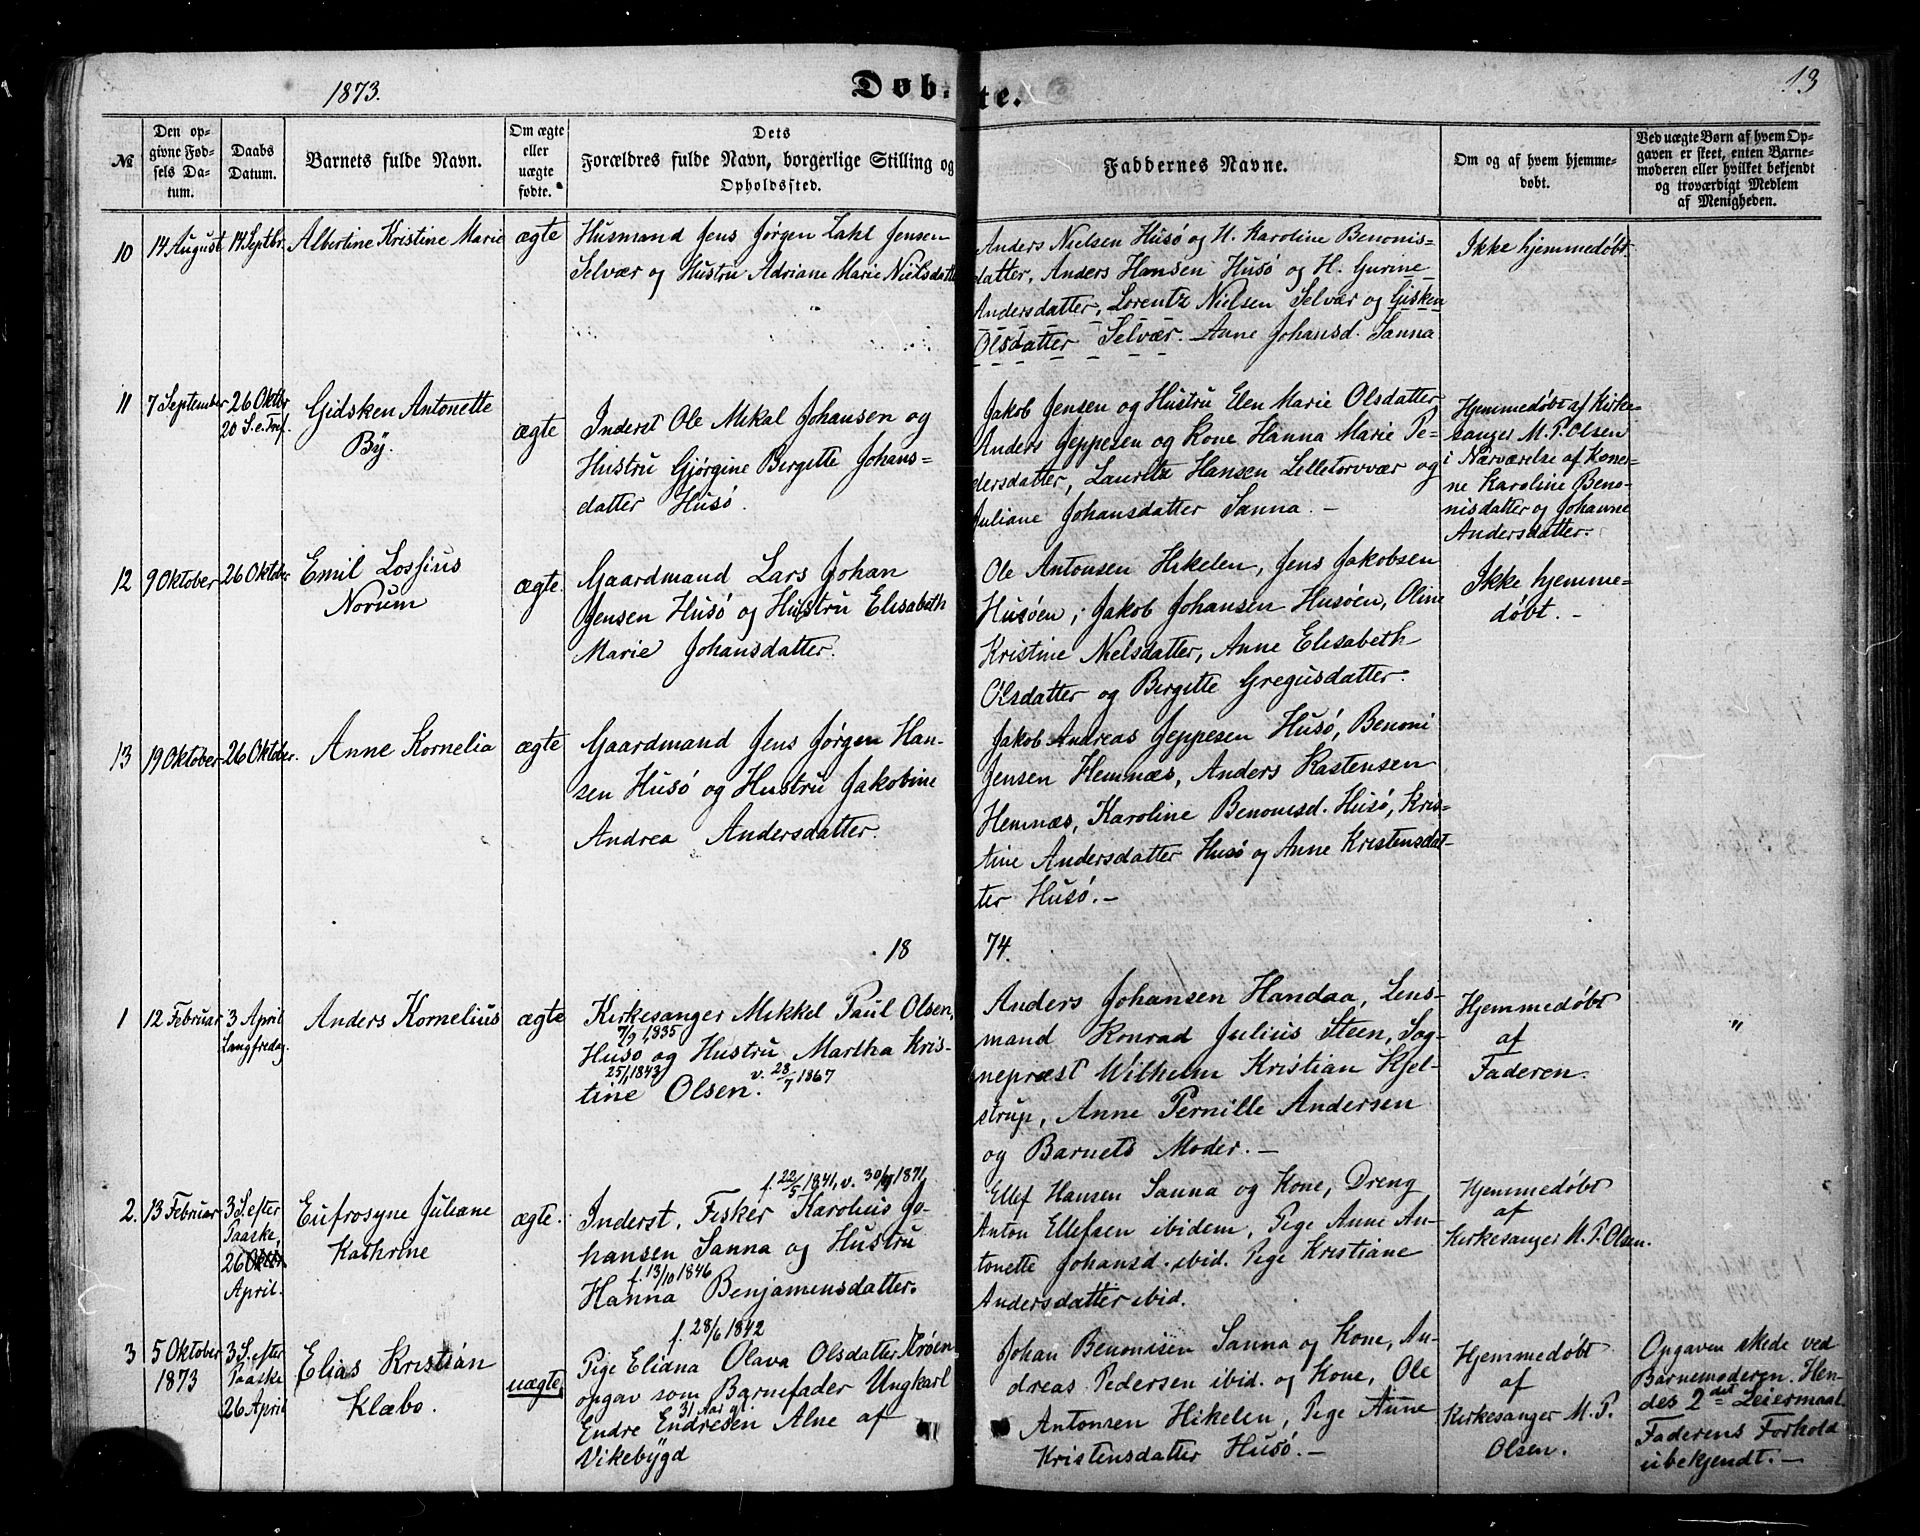 1873.
Døbte.
13
№
Den op-
givne Fød-
sels Da-
tum.
Daabs
Datum.
Barnets fulde Navn.
Om ægte
eller
uægte
fødte.
Dets
Forældres fulde Navn, borgerlige Stilling og
Opholdssted.
Faddernes Navne.
Om og af hvem hjemme-
døbt.
Ved uægte Børn af hvem Op-
gaven er skeet, enten Barne-
moderen eller hvilket bekjendt
og troværdigt Medlem
af Menigheden.
10
14 August
14 Septbr.
Albertine Kristine Marie
ægte
Husmand Jens Jørgen Zahl Jensen
Selvær og Hustru Adriane Marie Nielsdatter
Anders Nielsen Husø og H. Karoline Benonis-
datter, Anders Hansen Husø og H. Gurine
Andersdatter, Lorentz Nielsen Selvær og Gisken
Olsdatter Selvær. Anne Johansd. Sanna
Ikke hjemmedøbt.
11
7 September
26 Oktbr
20 S. e. Tref.
Gidsken Antonette
By.
ægte
Inderst Ole Mikal Johansen og
Hustru Gjørgine Bergitte Johans-
datter Husø.
Jakob Jensen og Hustru Elen Marie Olsdatter
Anders Jeppesen og Kone Hanna Marie Pe-
dersdatter, Lauritz Hansen Lilletorvvær og
Juliane Johansdatter Sanna. -
Hjemmedøbt af Kirke-
sanger M. P. Olsen
i Nærværelse af Koner-
ne Karoline Beno-
nisdatter og Johanne
Andersdatter.
12
9 Oktober
26 Oktober
Emil Lossius
Norum
ægte.
Gaardmand Lars Johan
Jensen Husø og Hustru Elisabeth
Marie Johansdatter.
Ole Antonsen Hikelen, Jens Jakobsen
Husøen, Jakob Johansen Husøen, Oline
Kristine Nielsdatter, Anne Elisabeth
Olsdatter og Bergitte Gregusdatter.
Ikke hjemme-
døbt. -
13
19 Oktober
26 Oktober.
Anne Kornelia
ægte
Gaardmand Jens Jørgen Han-
sen Husø og Hustru Jakobine
Andrea Andersdatter.
Jakob Andreas Jeppesen Husø, Benoni
Jensen Hemnæs, Anders Kastensen
Hemnæs, Karoline Benonisd. Husø, Kris-
tine Andersdatter Husø og Anne Kristensdat-
ter Husø. -
1874.
1
12 Februar
3 April
Langfredag.
Anders Kornelius
ægte
Kirkesanger Mikkel Paul Olsen,
7/9 1835
Husø og Hustru Martha Kris-
25/1 1843 v. 28/7 1867
tine Olsen.
Anders Johansen Handaa, Lens-
mand Konrad Julius Steen, Sog-
nepræst Wilhelm Kristian Kjel-
strup, Anne Pernille Andersen
og Barnets Moder. -
Hjemmedøbt
af
Faderen.
"
2.
13 Februar
3 S. efter
Paaske,
26
April.
Eufrosyne Juliane
Kathrine
ægte.
f. 22/5 1841, v. 30/7 1871.
Inderst, Fisker Karolius Jo-
hansen Sanna og Hustru
f. 13/10 1846
Hanna Benjamensdatter.
Ellef Hansen Sanna og Kone, Dreng
Anton Ellefsen ibidem, Pige Anne An-
tonette Johansd. ibid. Pige Kristiane
Andersdatter ibid.
Hjemmedøbt
af
Kirkesanger M. P. Olsen.
3
5 Oktober
1873
3 S. efter
Paaske
26 April
Elias Kristian
Klæbo.
uægte,
f. 28/6 1842
Pige Eliana Olava Olsdatter Krøen
opgav som Barnefader Ungkarl
31 Aar gl.
Endre Endresen Alne af
Vikebygd
Johan Benonisen Sanna og Kone, An-
dreas Pedersen ibid. og Kone, Ole
Antonsen Hikelen, Pige Anne
Kristensdatter Husø. -
Hjemmedøbt
af
Kirkesanger M. P.
Olsen.
Opgaven skede ved
Barnemoderen. Hen-
des 2det Leiermaal
Faderens Forhold
ubekjendt. -